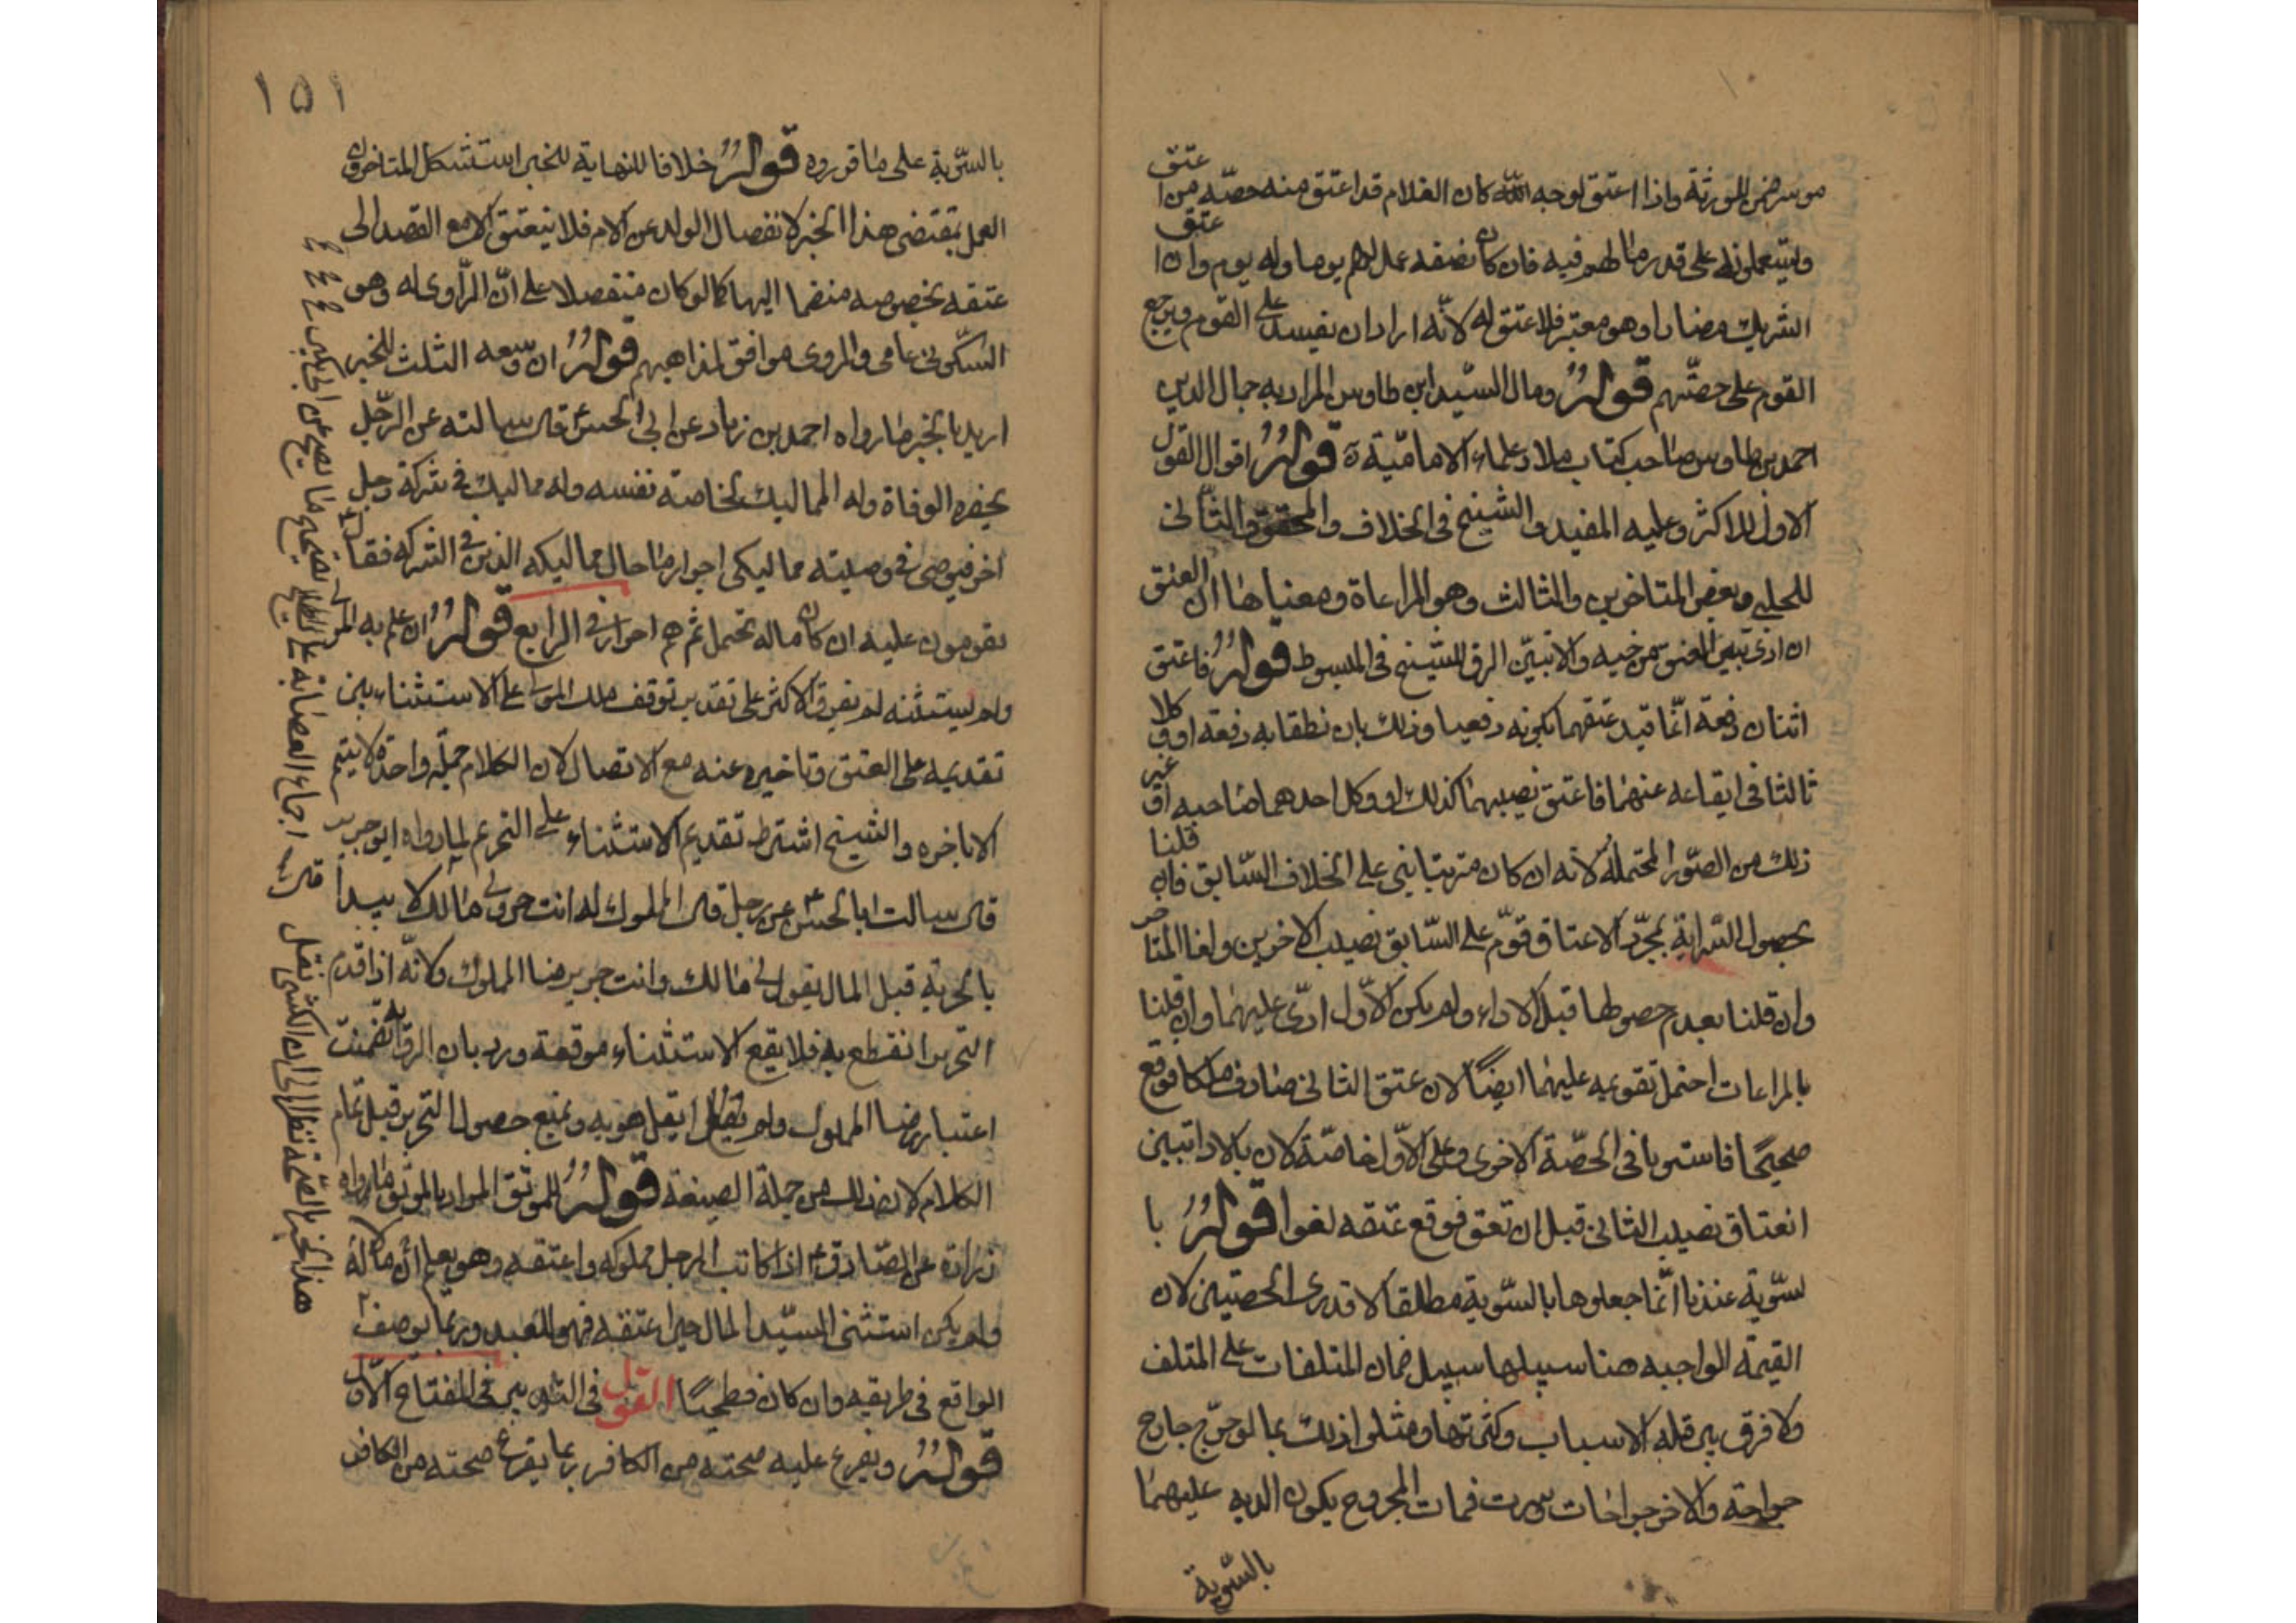 موسر ضمن للورثة واذا اعتق لوجه الله كان الغلام قد اعتق منه حصّة من اعتق
ويستعملونه على قدر ما لهم فيه فان كان نصفه عمل لهم يوما وله يوم وان اعتق
الشريك مضارا وهو معتبر فلا عتق له لانّه اراد ان يفسد على القوم ويرجع
القوم على حصّتهم قوله ومال السيّد ابن طاوس المراد به جمال الدين
احمد بن طاوس صاحب كتاب ملاذ علماء الاماميّة ره قوله اقوال القول
الاول للاكثر وعليه المفيد والشيخ فى الخلاف والمحقق والثانى
للحلى وبعض المتاخرين والثالث وهو المراعاة ومعناها ان العتق
ان ادى تبيّن العتق من حينه والا تبيّن الرق للشيخ فى المبسوط قوله فاعتق
اثنان دفعة انّما قيد عتقهما بكونه دفعيا وذلك بان نطقا به دفعة او وكلا
ثالثا فى ايقاعه عنهما فاعتق نصيبهما كذلك او وكل احدهما صاحبه او غير
ذلك من الصّور المحتملة لانه ان كان مترتبا بنى على الخلاف السّابق فان قلنا
بحصول السّراية بمجرّد الاعتاق قوّم على السّابق نصيب الاخرين ولغا المتاخر
وان قلنا بعدم حصولها قبل الاداء ولم يكن الاوّل ادّى عليهما وان قلنا
بالمراعات احتمل تقويمه عليهما ايضًا لان عتق الثانى صادف ملكا فوقع
صحيحًا فاستويا فى الحصّة الاخرى وعلى الاوّل خاصّة لان بالاداء تبيّن
انعتاق نصيب الثانى قبل ان تعتق فوقع عتقه لغوا قوله با
لسّوية عندنا انّما جعلوها بالسّوية مطلقا لا قدرى الحصتين لان
القيمة الواجبه هنا سبيلها سبيل ضمان المتلفات على المتلف
ولا فرق بين قلة الاسباب وكثرتها ومثلوا ذلك بما لو جرّح جارح
جراحة والاخر جراحات وسرت فمات المجروح يكون الديه عليهما
بالسّوية
١٥١
بالسّوية على ما قرروه قوله خلافا للنهاية للخبر استشكل المتاخرون
العمل بمقتضى هذا الخبر لانفصال الولد عن الام فلا ينعتق الا مع القصد الى
عتقه بخصوصه منضما اليها كما لو كان منفصلا على انّ الرّاوى له وهو
السكّونى عامى والمروى موافق لمذاهبهم قوله ان وسعه الثلث للخبر
اريد بالخبر ما رواه احمد بن زياد عن ابى الحسنؑ قال سالته عن الرّجل
يحضره الوفاة وله المماليك لخاصة نفسه وله مماليك فى شركة رجل
اخر فيوصى فى وصيته مماليكى احرار ما حال مماليكه الذين فى الشركه فقال
يقومون عليه ان كان ماله يحتمل ثم هم احرار فى الرابع قوله ان علم به المولى
ولم يستثنه لم يفرق الاكثر على تقدير توقف ملك المولى على الاستثناء بين
تقديمه على العتق وتاخيره عنه مع الاتصال لان الكلام جملة واحدة لا يتم
الا باخره والشيخ اشترط تقديم الاستثناء على التحريم لما رواه ابو جرير
قال سالت ابا الحسنؑ عن رجل قال لمملوك له انت حر ولى مالك لا يبدا
بالحرية قبل المال يقول لى مالك وانت حر برضا المملوك ولانّه اذا قدم
التحرير انقطع به فلا يقع الاستثناء موقعه ورد بان الرواية تضمنت
اعتبار رضا المملوك ولم يقل هو به ويمنع حصول التحرير قبل تمام
الكلام لان ذلك من جملة الصيغة قوله للموثق المراد بالموثق ما رواه
زرارة عن الصّادقؑ اذا كاتب الرجل مملوكه واعتقه وهو يعلم ان له مالا
ولم يكن استثنى السيّد المال حين اعتقه فهو للعبد وربما يوصف
الواقع فى طريقه وان كان فطحيًا القول فى التدبير فى المفتاح الاوّل
قوله ويفرع عليه صحته من الكافر ربما يفرع صحته من الكافر
هذا الخبر بالصّحة نظرا الى ان الكشى نقل اجماع العصابة على تصحيح ما يصح عن ابن بكير